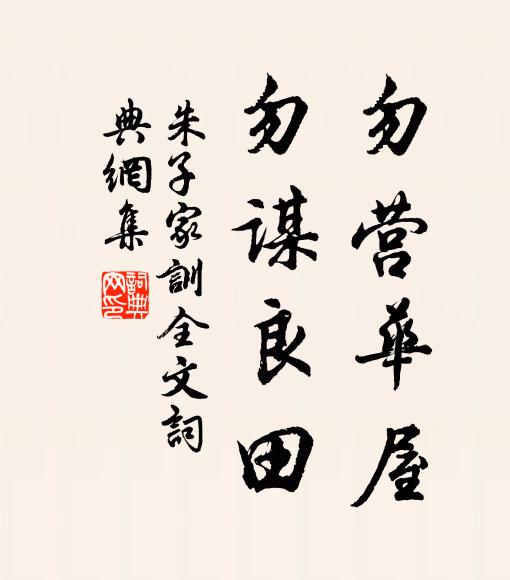 勿营華屋
勿謀良田
朱子家訓全文詞
典網集
詞典
网印